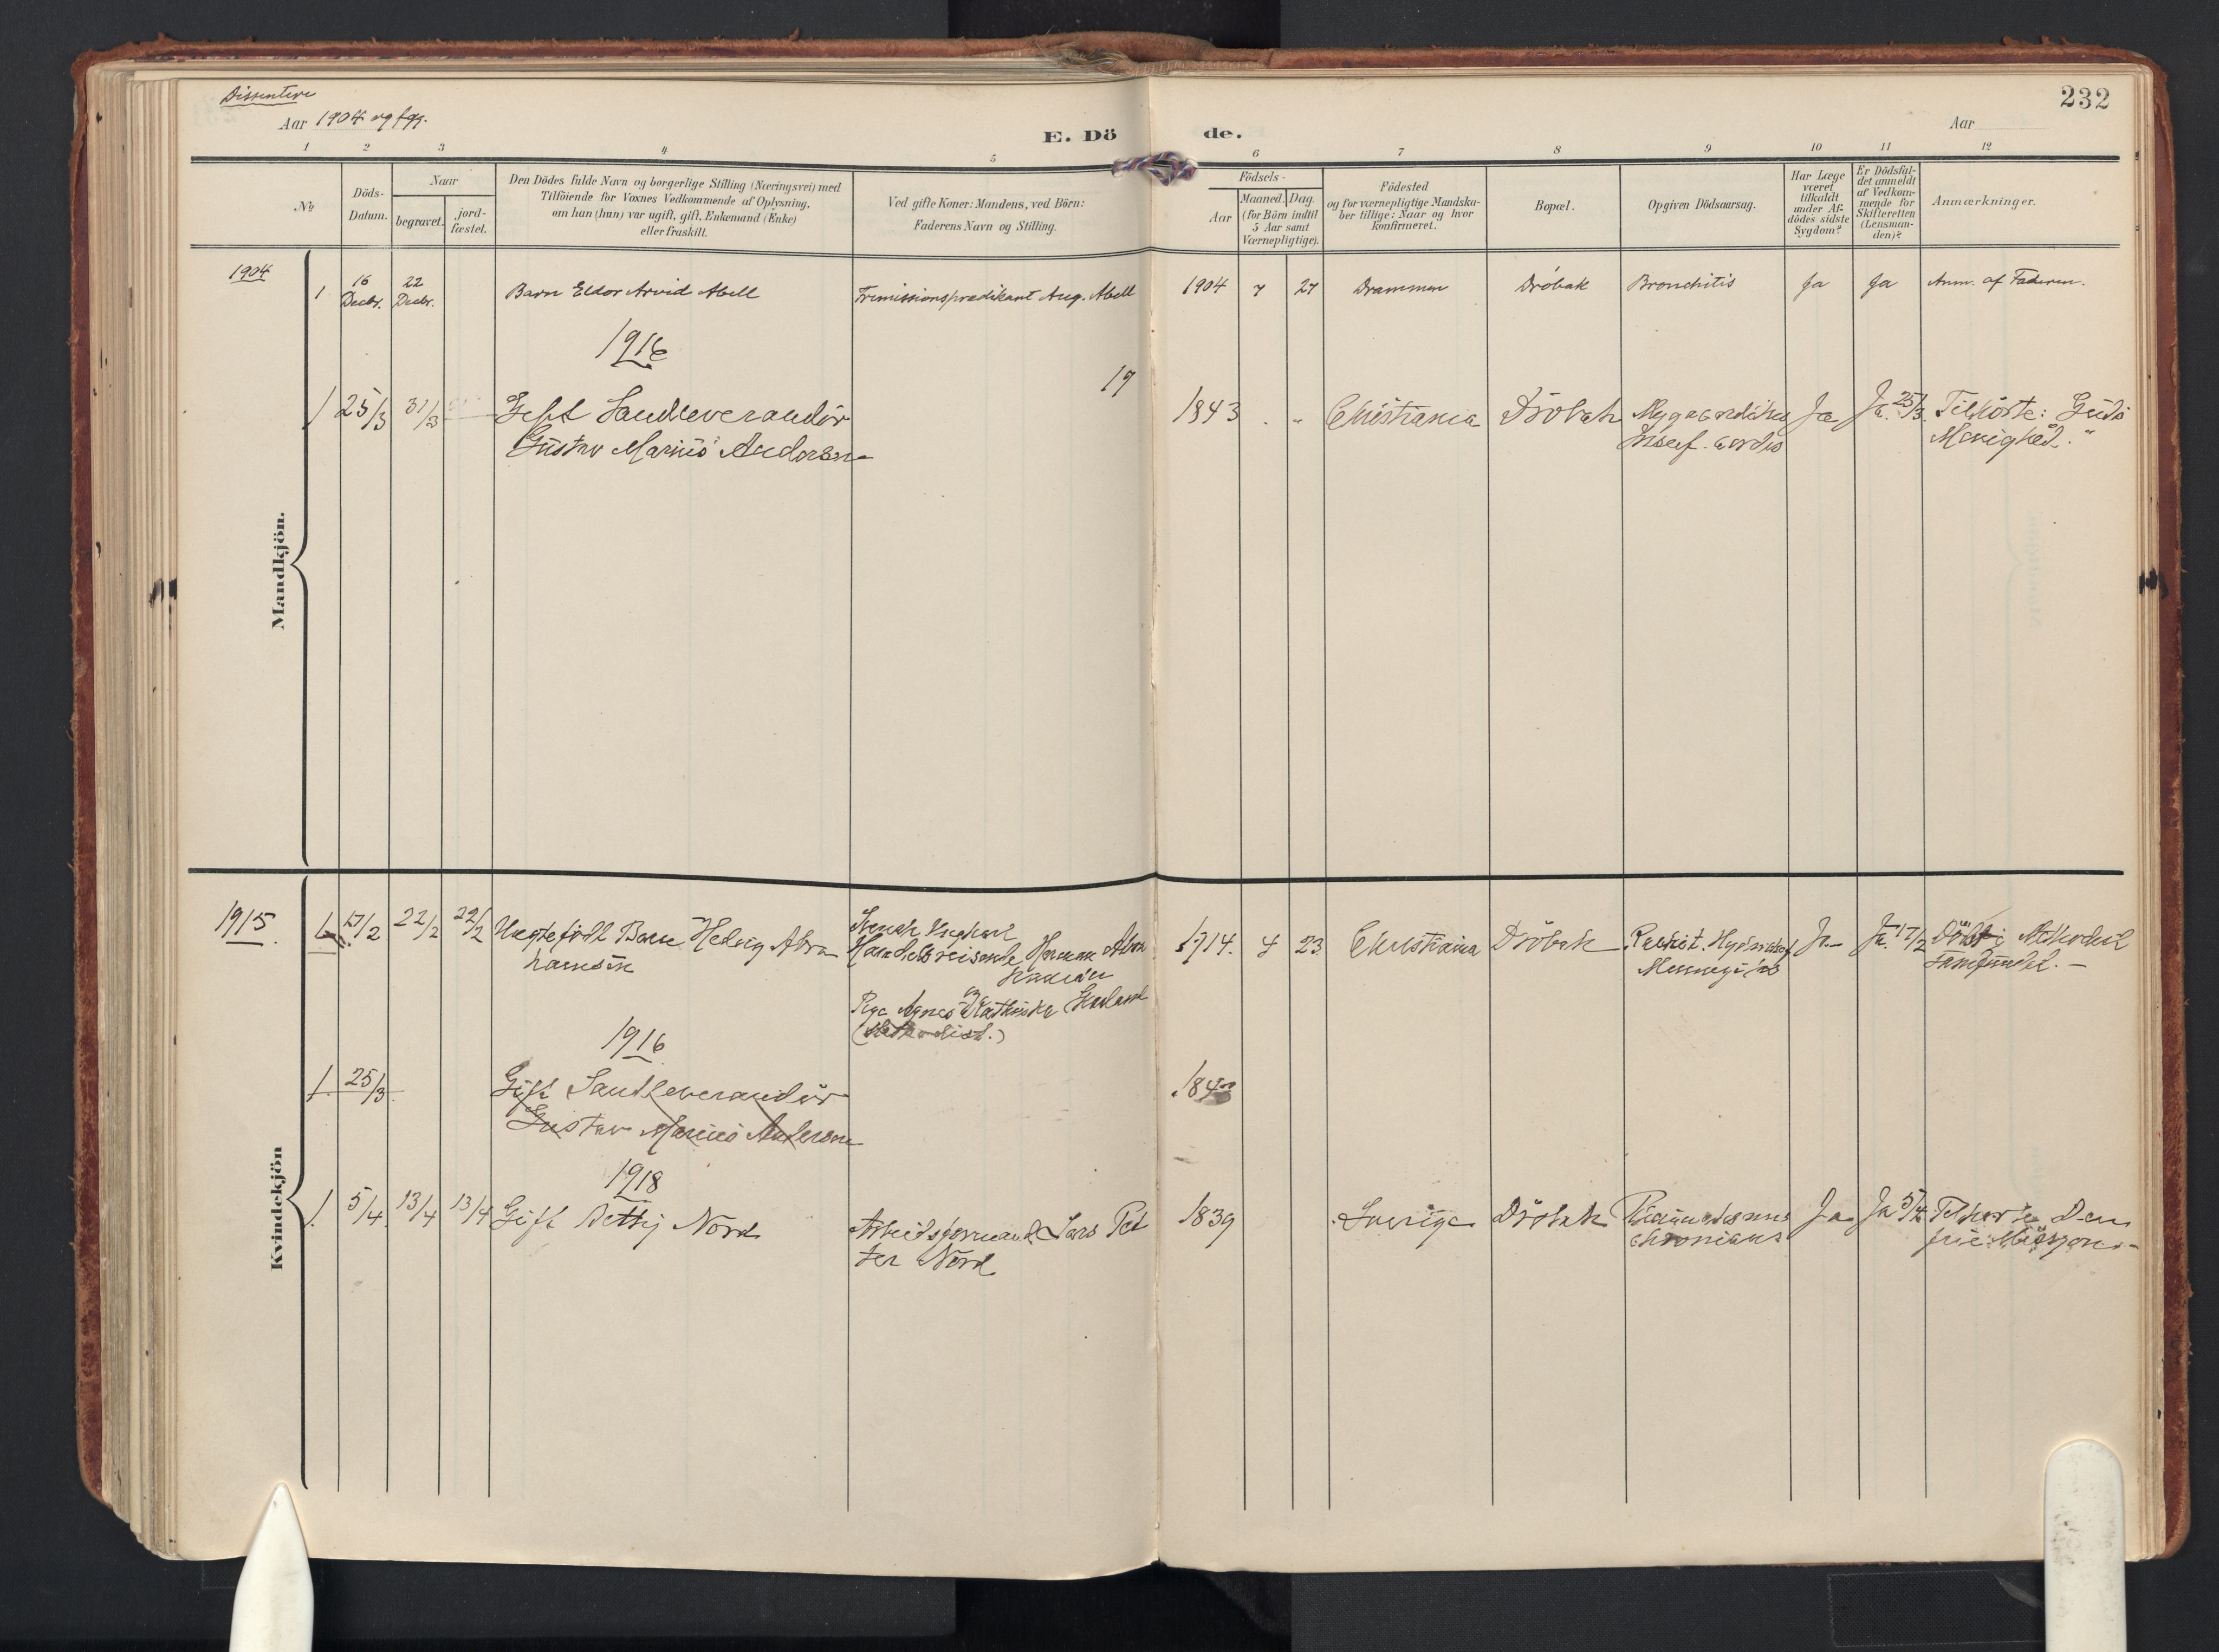 Dissentere
Aar 1904 og fgg.
E. Dö de.
Aar
232
1 2 3 4 5 6 7 8 9 10 11 12
No
Döds-
Datum.
Naar
begravet.
jord-
fæstet.
Den Dödes fulde Navn og borgerlige Stilling (Næringsvei) med
Tilföiende for Voxnes Vedkommende af Oplysning,
om han (hun) var ugift, gift, Enkemand (Enke)
eller fraskilt.
Ved gifte Koner: Mandens, ved Börn:
Faderens Navn og Stilling.
Födsels-
Aar
Maaned. Dag.
(for Börn indtil
5 Aar samt
Værnepligtige).
Födested
og for værnepligtige Mandska-
ber tillige: Naar og hvor
konfirmeret.
Bopæl.
Opgiven Dödsaarsag.
Har Læge
været
tilkaldt
under Af-
dödes sidste
Sygdom?
Er Dödsfal-
det anmeldt
af Vedkom-
mende for
Skifteretten
(Lensman-
den)?
Anmærkninger.
Mandkjön.
1904
1 16 Decbr. 22 Decbr. Barn Eldor Arvid Abell Frimissionsprædikant Aug. Abell 1904 7 27 Drammen Dröbak Bronchitis Ja Ja Anm. af Faderen.
1916
19
1 25/3 31/3 Gift Sandleverandör 1843 . " Christiania Dröbak Ja Ja. 25/3. Tilhörte: Guds
Gustav Marius Andersen Insuf. cordis Menighed. "
Kvindekjön
1915
1. 17/2 22/2 22/2 Uægtefödt Barn Hedvig Abra
hamsen
Handelsreisende Herman Abra
Pige Agnes Kathinka
(Methodist.)
1914. 4 23 Christiania Dröbak Ja Ja. 17/2 Methodist
samfundet. -
1916
1. 25/3. Gift Sandleverandör 1843
Gustav Marius Andersen
1918
1. 5/4 13/4 13/4 Gift Betty Nord Arbeidsformand Lars Pet 1839 Sverige Dröbak Ja Ja 5/4 Tilhörte Den
ter Nord chronicus frie Missjon. -